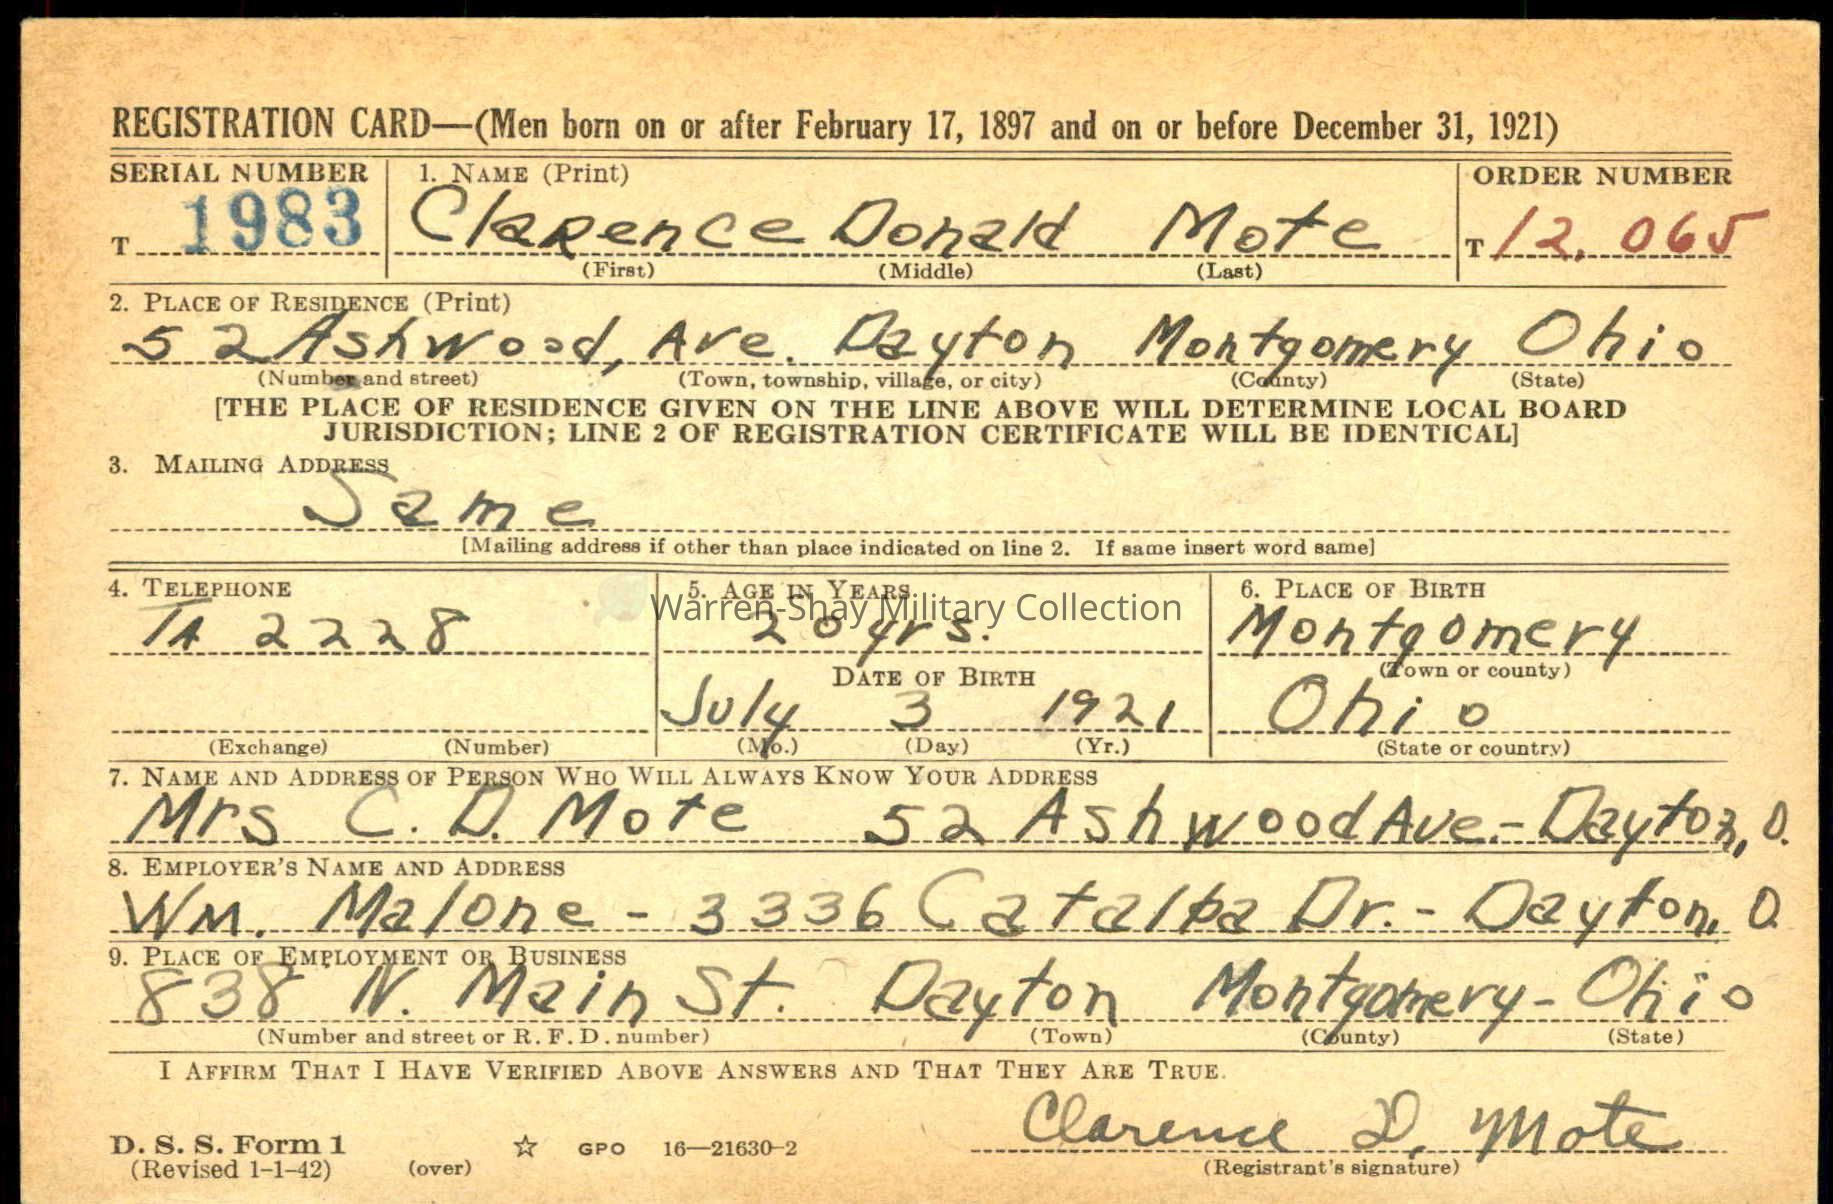 REGISTRATION CARD—(Men born on or after February 17, 1897 and on or before December 31, 1921)
SERIAL NUMBER 1. NAME (Print) ORDER NUMBER
T 1983 Clarence Donald Mote T 12,065
(First) (Middle) (Last)
2. PLACE OF RESIDENCE (Print)
52 Ashwood, Ave. Dayton Montgomery Ohio
(Number and street) (Town, township, village, or city) (County) (State)
[THE PLACE OF RESIDENCE GIVEN ON THE LINE ABOVE WILL DETERMINE LOCAL BOARD
JURISDICTION; LINE 2 OF REGISTRATION CERTIFICATE WILL BE IDENTICAL]
3. MAILING ADDRESS
Same
[Mailing address if other than place indicated on line 2. If same insert word same]
4. TELEPHONE 5. AGE IN YEARS 6. PLACE OF BIRTH
Warren-Shay Military Collection
TA 2228 20 yrs. Montgomery
DATE OF BIRTH (Town or county)
July 3 1921 Ohio
(Exchange) (Number) (Mo.) (Day) (Yr.) (State or country)
7. NAME AND ADDRESS OF PERSON WHO WILL ALWAYS KNOW YOUR ADDRESS
Mrs C. D. Mote 52 Ashwood Ave.- Dayton, O.
8. EMPLOYER'S NAME AND ADDRESS
Wm. Malone - 3336 Catalpa Dr. - Dayton, O.
9. PLACE OF EMPLOYMENT OR BUSINESS
838 N. Main St. Dayton Montgomery - Ohio
(Number and street or R. F. D. number) (Town) (County) (State)
I AFFIRM THAT I HAVE VERIFIED ABOVE ANSWERS AND THAT THEY ARE TRUE.
Clarence D. Mote
D. S. S. Form 1 ☆ GPO 16—21630-2
(Revised 1-1-42) (over) (Registrant's signature)